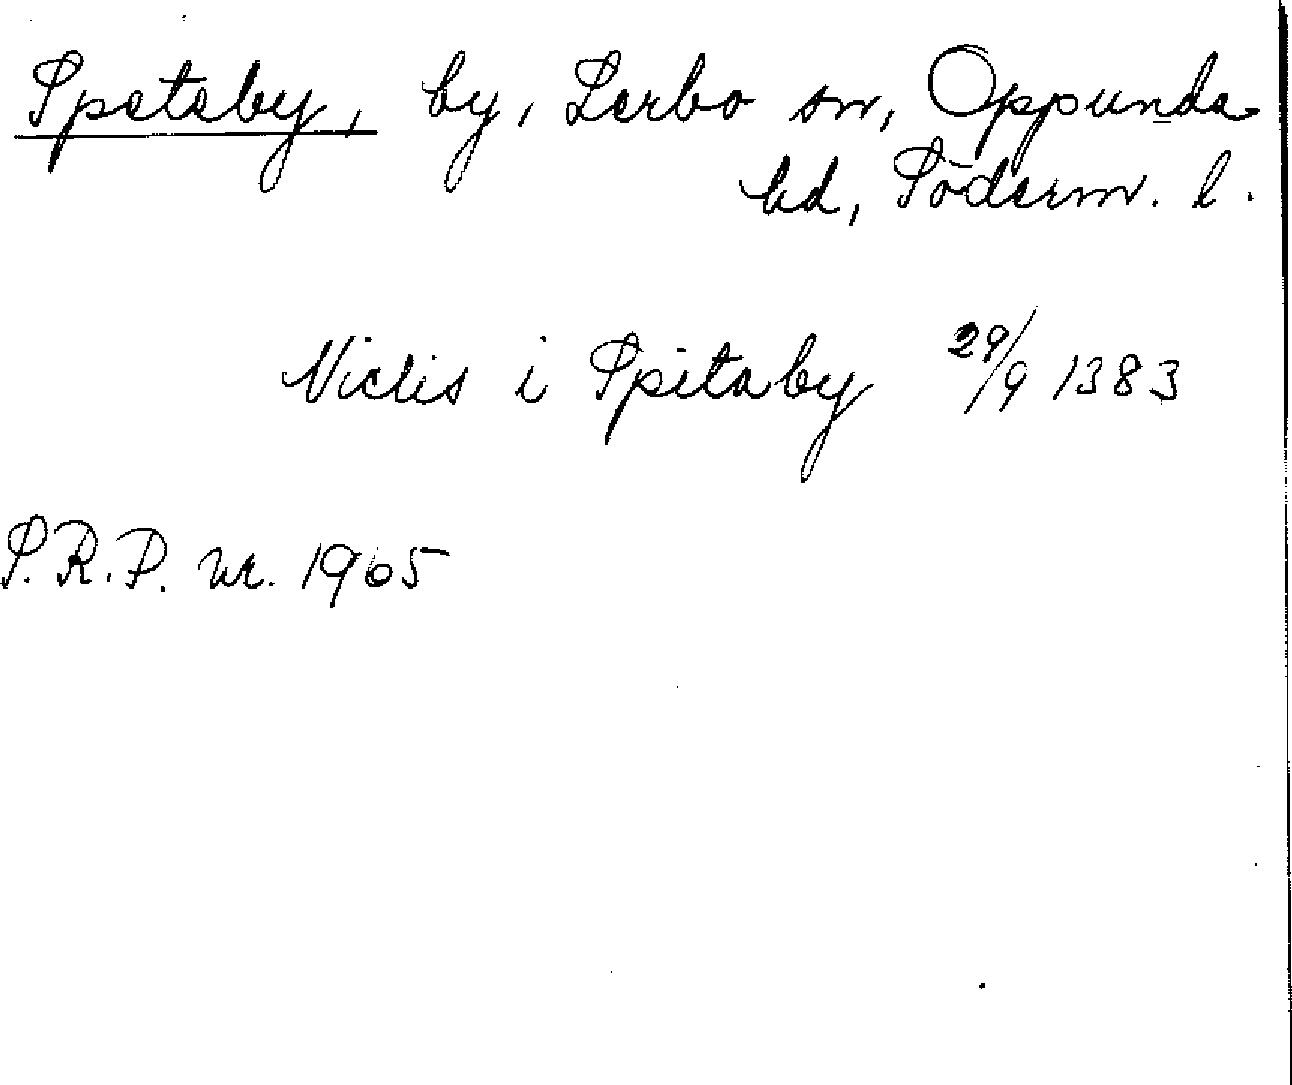 Spetaby, by, Lerbo sn, Oppunda
hd, Söderm. l.
Niclis i Spitaby 29/9 1383
S.R.P. nr. 1965